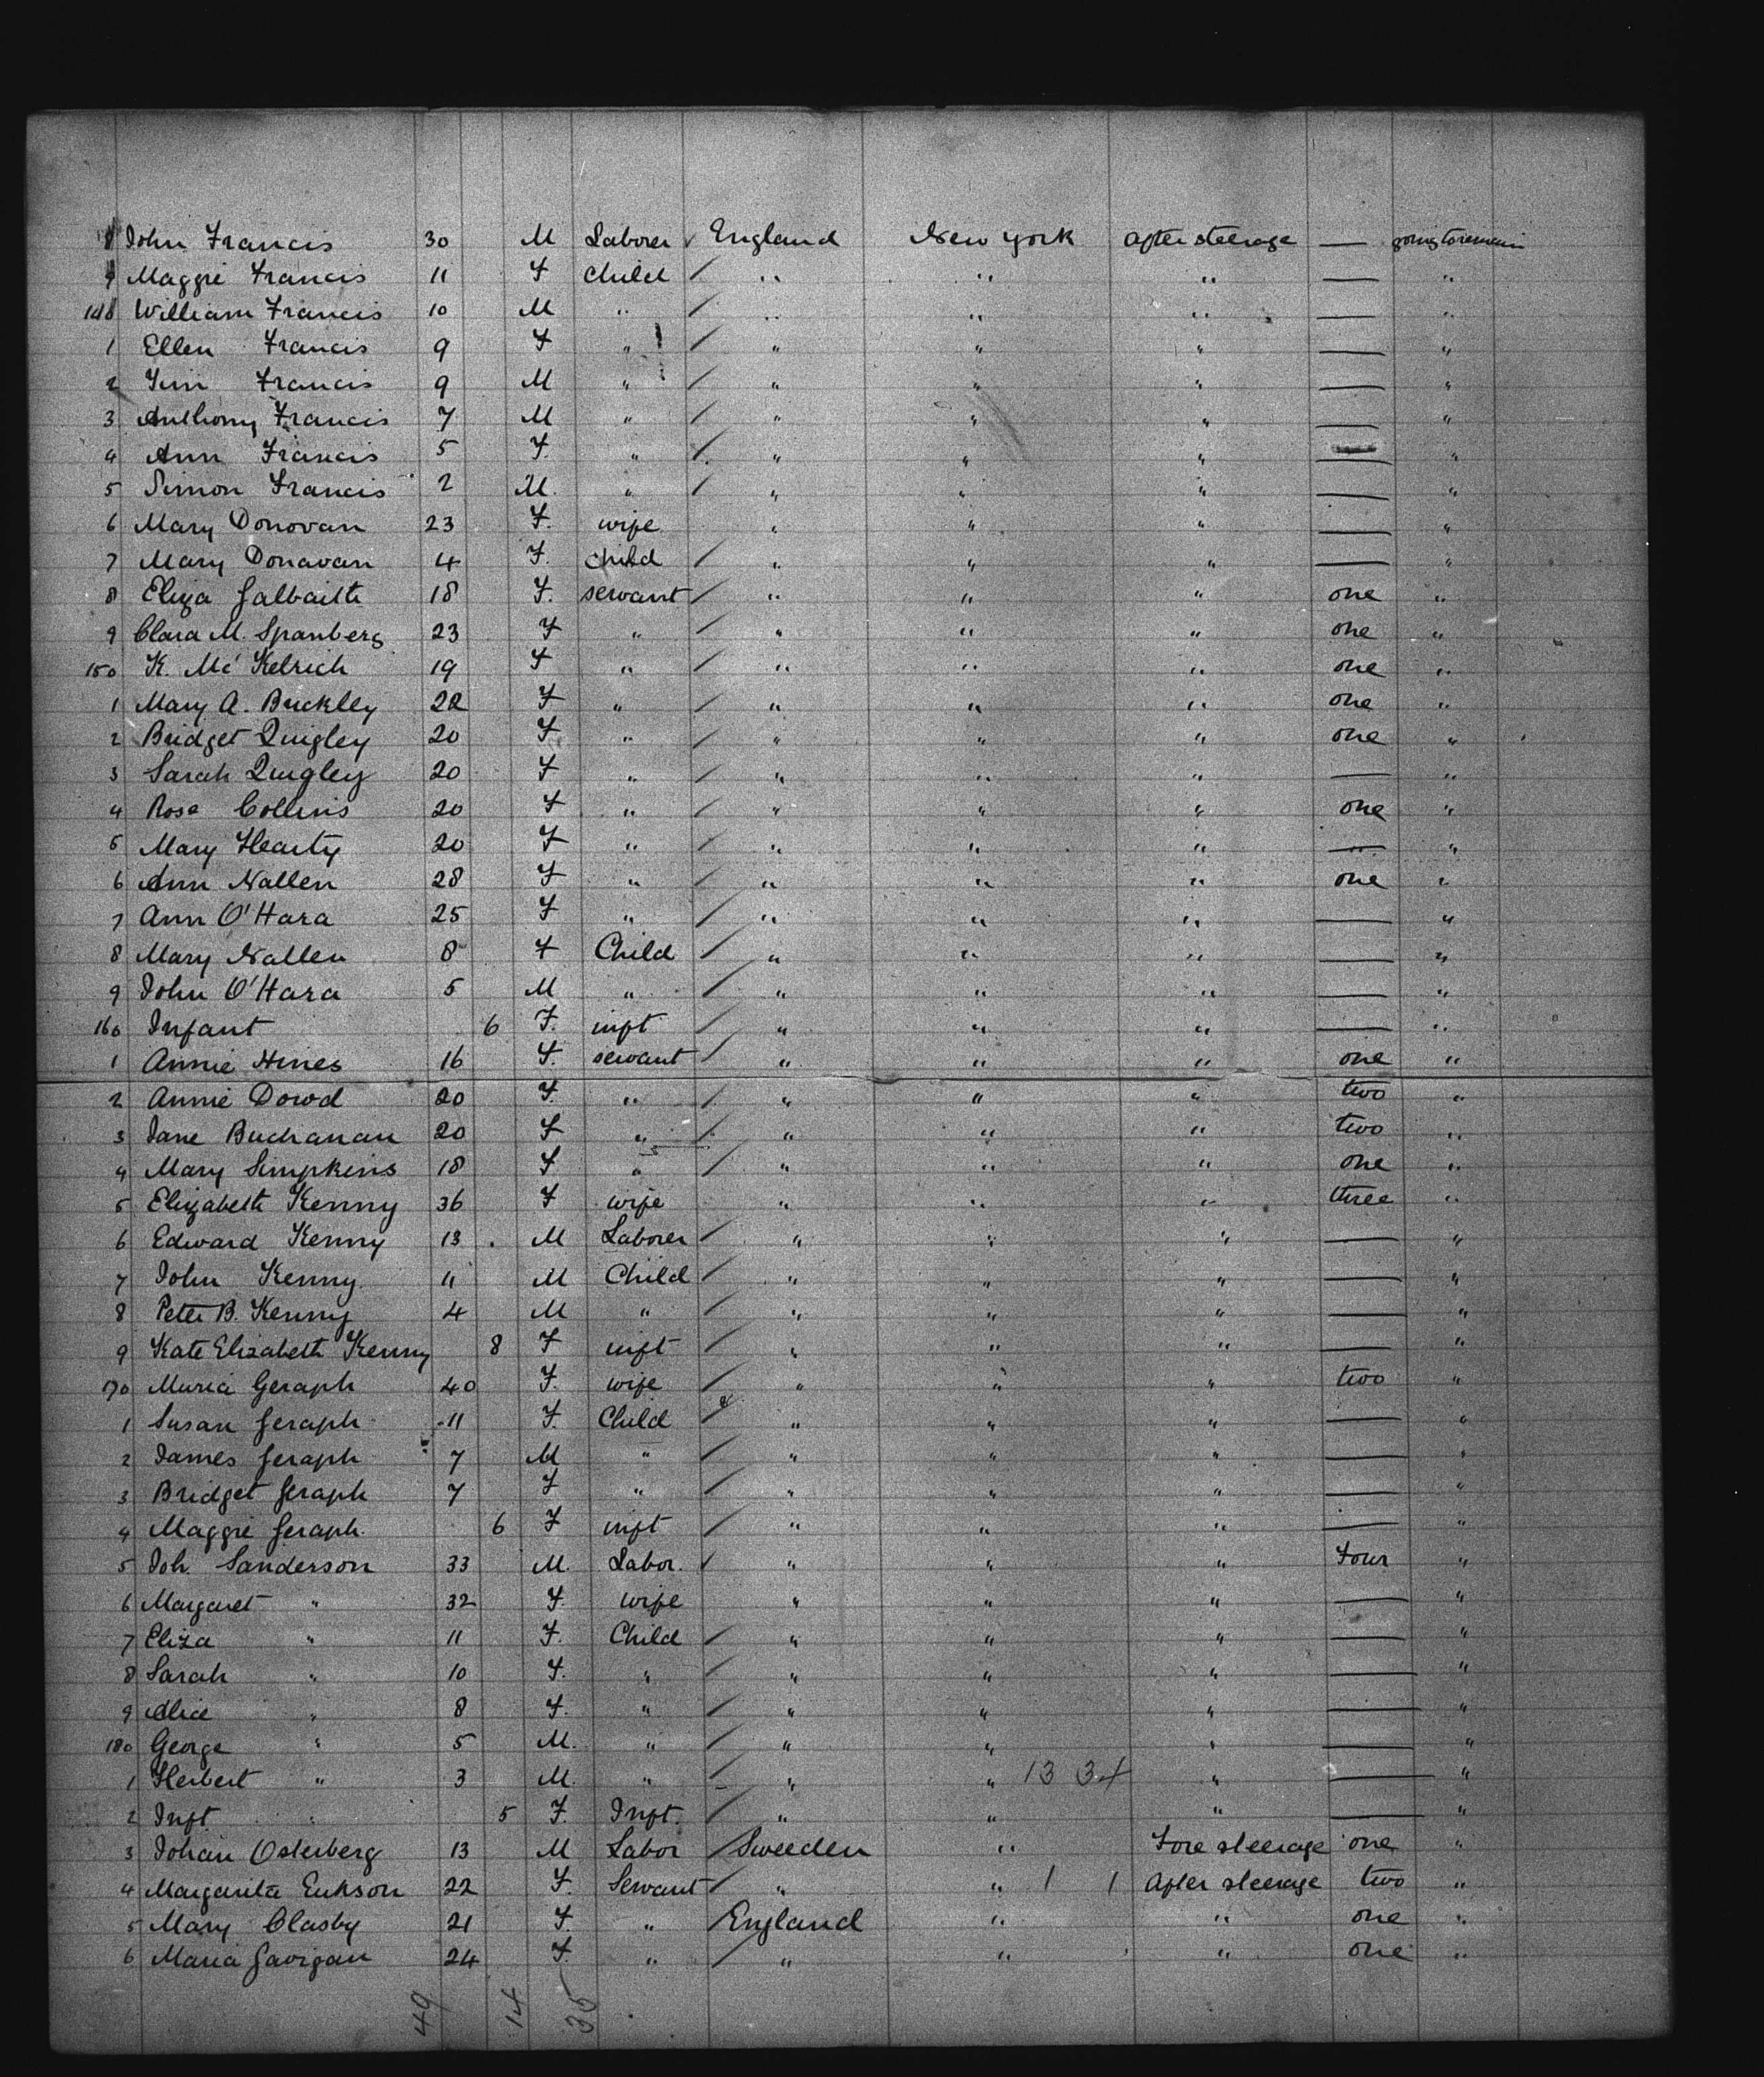 8 John Francis 30 M Laborer England New York After steerage — going to remain
9 Maggie Francis 11 F Child " " " — "
140 William Francis 10 M " " " " — "
1 Ellen Francis 9 F " " " " — "
2 Jim Francis 9 M " " " " — "
3 Anthony Francis 7 M " " " " — "
4 Ann Francis 5 F. " " " " — "
5 Simon Francis 2 M. " " " " — "
6 Mary Donovan 23 F. wife " " " — "
7 Mary Donavan 4 F. child " " " — "
8 Eliza Galbaith 18 F. servant " " " one "
9 Clara M. Spanberg 23 F " " " " one "
150 K. Mc Kelrich 19 F " " " " one "
1 Mary A. Buckley 22 F " " " " one "
2 Bridget Quigley 20 F " " " " one "
3 Sarah Quigley 20 F " " " " — "
4 Rose Collins 20 F " " " " one "
5 Mary Hearty 20 F " " " " — "
6 Ann Nallen 28 F " " " " one "
7 Ann O'Hara 25 F " " " " — "
8 Mary Nallen 8 F Child " " " — "
9 John O'Hara 5 M " " " " — "
160 Infant 6 F. inft " " " — "
1 Annie Hines 16 F. servant " " " one "
2 Annie Dowd 20 F. " " " " two "
3 Jane Buchanan 20 F " " " " two "
4 Mary Simpkins 18 F " " " " one "
5 Elizabeth Kenny 36 F wife " " " three "
6 Edward Kenny 13 M Laborer " " " — "
7 John Kenny 11 M Child " " " — "
8 Peter B. Kenny 4 M " " " " — "
9 Kate Elizabeth Kenny 8 F inft " " " — "
170 Muria Geraph 40 F. wife " " " two "
1 Susan Geraph 11 F. Child " " " — "
2 James Geraph 7 M " " " " — "
3 Bridget Geraph 7 F " " " " — "
4 Maggie Geraph 6 F inft " " " — "
5 Joh. Sanderson 33 M. Labor. " " " Four "
6 Margaret " 32 F. wife " " " — "
7 Eliza " 11 F. Child " " " — "
8 Sarah " 10 F. " " " " — "
9 Alice " 8 F. " " " " — "
180 George " 5 M. " " " " — "
1 Herbert " 3 M. " " " 13 34 " — "
2 Inft. " 5 F. Inft. " " " — "
3 Johan Osterberg 13 M Labor Sweeden " Fore steerage one "
4 Margarita Erikson 22 F. Servant " " 1 1 After steerage two "
5 Mary Clasby 21 F. " England " " one "
6 Maria Gavigan 24 F. " " " " one "
49 14 35